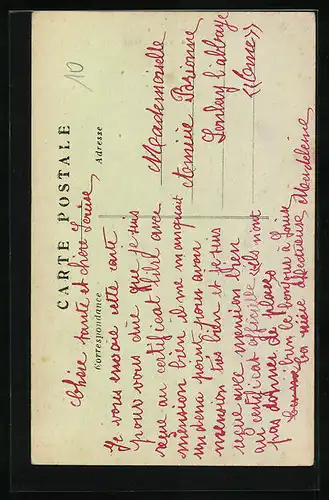 10
CARTE POSTALE
Correspondance
Adresse
Chère tante et chère Louise
Je vous envoie cette carte
pour vous dire que je suis
reçue au certificat libre avec
mention bien il me manquait
un demi point pour avoir
mention très bien et je suis
reçue avec mention bien
au certificat officielle ils n'ont
pas donner de places
bien le bonjour à Louise
ta nièce affectueuse Madeleine
Mademoiselle
Brionne
Lenlay L'abbaye
((Cesse))